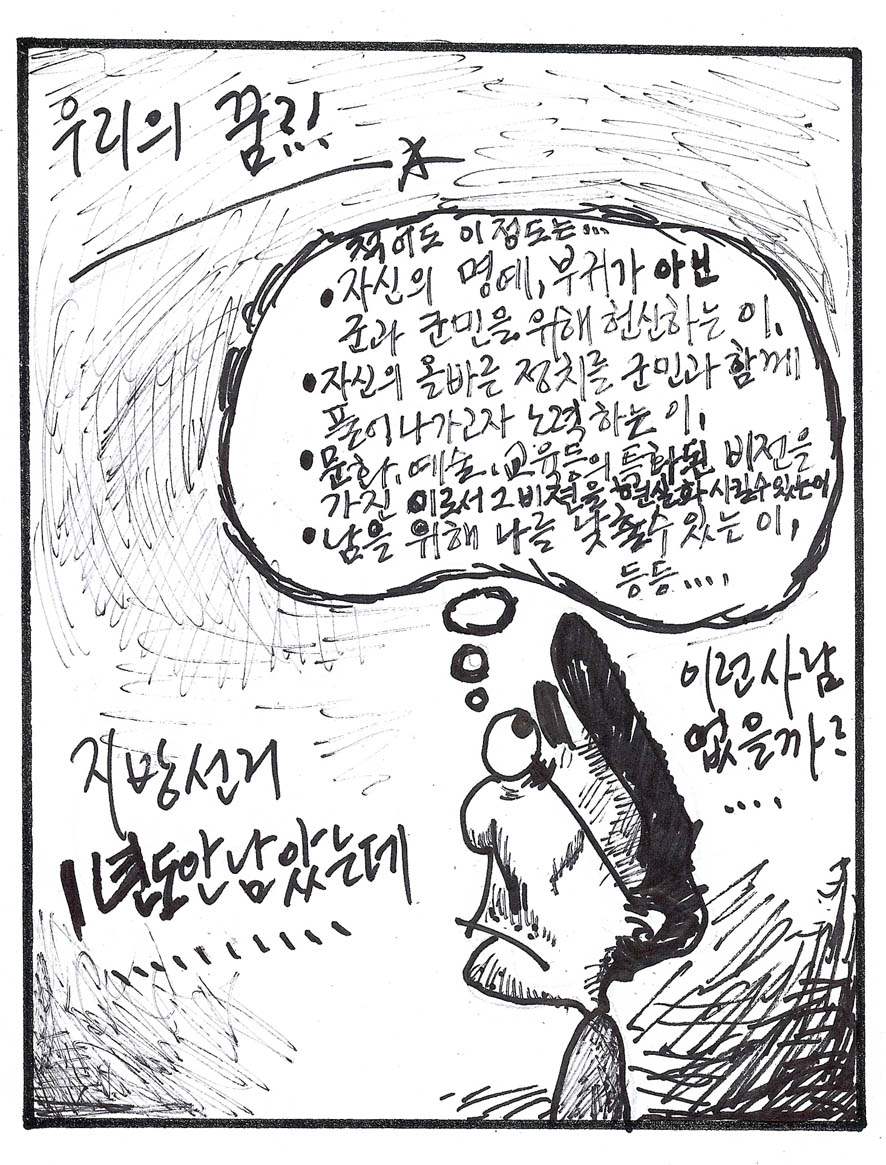 우리의 꿈!!!
적어도 이 정도는...
• 자신의 명예, 부귀가 아닌
군과 군민을 위해 헌신하는 이.
• 자신의 올바른 정치를 군민과 함께
풀어나가고자 노력하는 이.
• 문화, 예술, 교육등의 특화된 비전을
가진 이로서 그 비젼을 현실화 시킬수 있는이
• 남을 위해 나를 낮출수 있는 이,
등등....
이런사람
없을까?
....
지방선거
1년도 안남았는데
..........